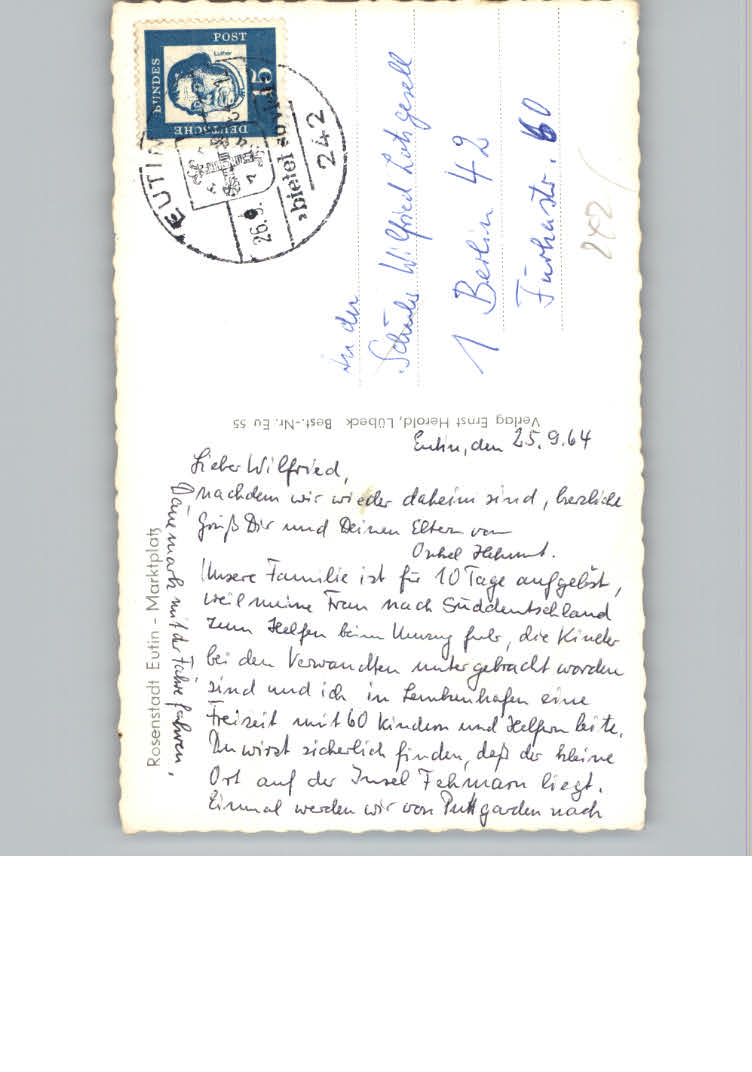 DEUTSCHE
BUNDES
POST
Luther
15
EUTIN
26.9.
bietet so viel
242
An den
Schüler Wilfried
1 Berlin 42
60
242
Verlag Ernst Herold, Lübeck Best.-Nr. Eu 55
Rosenstadt Eutin - Marktplatz
Eutin, den 25.9.64
Lieber Wilfried,
nachdem wir wieder daheim sind, herzliche
Grüß Dir und Deinen Eltern von
Onkel Helmut.
Unsere Familie ist für 10 Tage aufgelöst,
weil meine Frau nach Süddeutschland
zum Helfen beim Umzug fuhr, die Kinder
bei den Verwandten untergebracht worden
sind und ich in Lemkenhafen eine
Freizeit mit 60 Kindern und Helfern leite.
Du wirst sicherlich finden, daß der kleine
Ort auf der Insel Fehmarn liegt.
Einmal werden wir von Puttgarden nach
Dänemark mit der Fähre fahren,